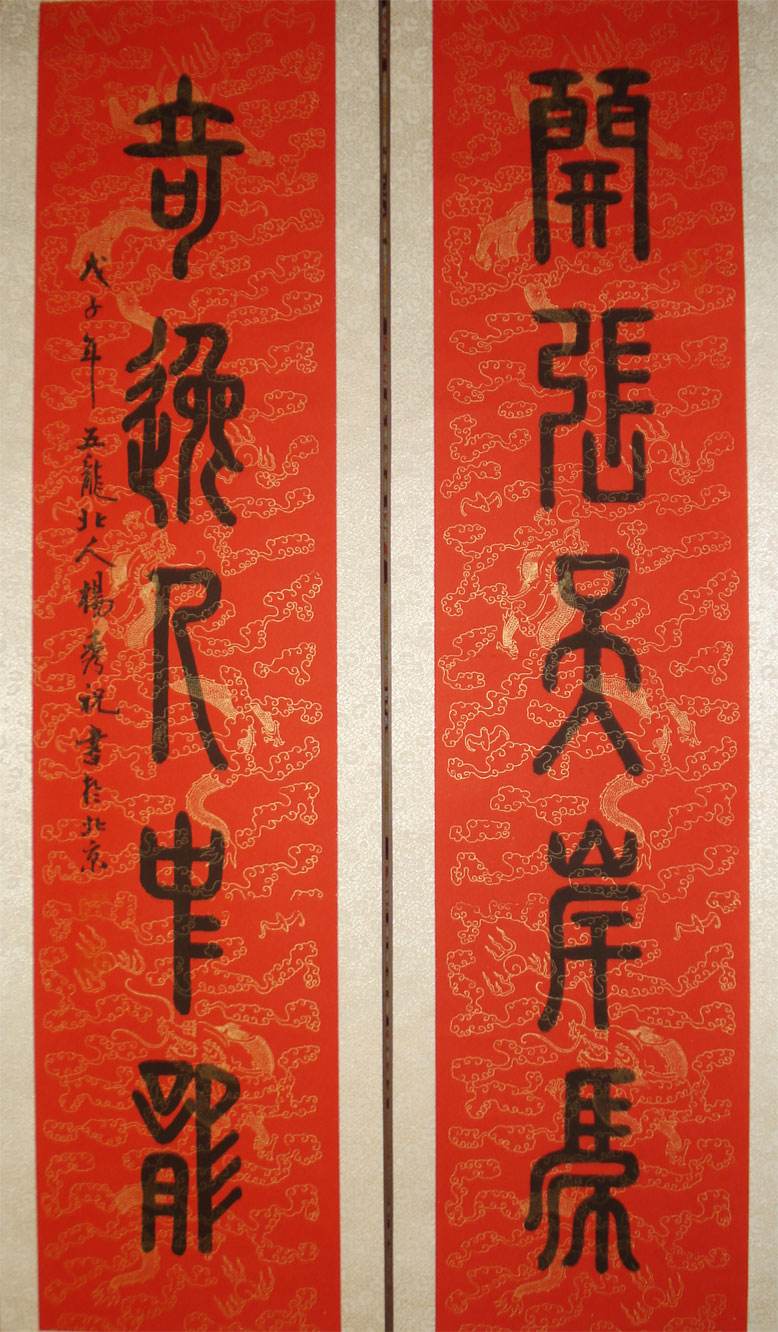 開張天岸馬
奇逸人中龍
戊子年五龍北人楊秀祝書於北京